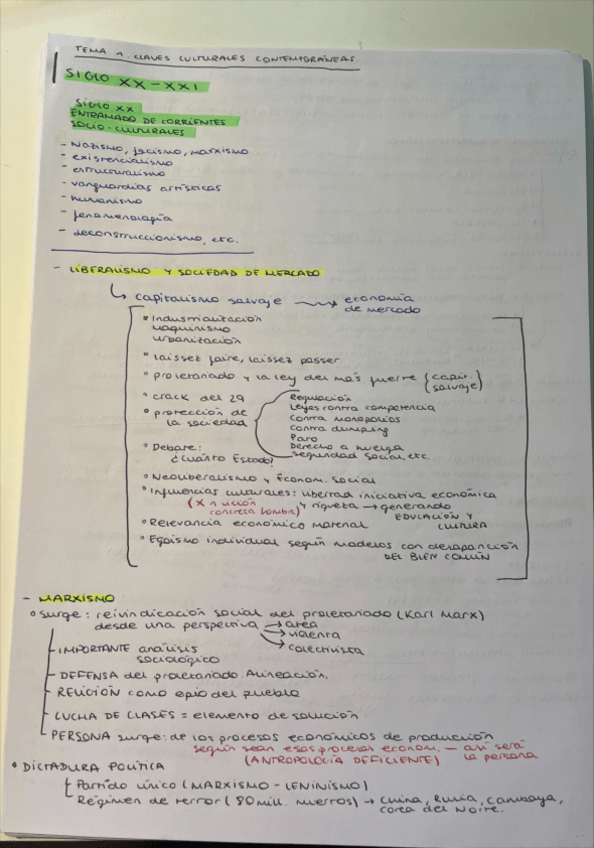 TEMA 1. CLAVES CULTURALES CONTEMPORÁNEAS
SIGLO XX-XXI
SIGLO XX
ENTRAMADO DE CORRIENTES
SOCIO-CULTURALES
- Nazismo, facismo, marxismo
- existencialismo
- estructuralismo
- vanguardias artísticas
- humanismo
- fenomenología
- deconstruccionismo, etc.
- LIBERALISMO Y SOCIEDAD DE MERCADO
↳ capitalismo salvaje → economía
de mercado
° Industrialización
maquinismo
urbanización
° laissez faire, laissez passer
° proletariado y la ley del más fuerte (capit.
salvaje)
° crack del 29
° protección de
la sociedad
Regulación
Leyes contra competencia
contra monopolios
contra dumping
Paro
Derecho a huelga
seguridad social, etc.
° Debate:
¿cuánto Estado?
° Neoliberalismo y Econom. social
° Influencias culturales: libertad iniciativa económica
y riqueza → generando
EDUCACIÓN Y
CULTURA
concreta hombre)
° Relevancia económico material
° Egoísmo individual según modelos con desaparición
DEL BIEN COMÚN
- MARXISMO
° Surge: reivindicación social del proletariado (Karl Marx)
desde una perspectiva → atea
→ violenta
→ colectivista
- IMPORTANTE análisis
sociológico
- DEFENSA del proletariado. Alineación.
- RELIGIÓN como opio del pueblo
- LUCHA DE CLASES = elemento de solución
- PERSONA surge: de los procesos económicos de producción
según sean esos procesos econom. - así será
la persona
(ANTROPOLOGÍA DEFICIENTE)
° DICTADURA POLÍTICA
- Partido único (MARXISMO - LENINISMO)
- Régimen de terror (80 mill. muertos) → China, Rusia, Camboya,
Corea del Norte.